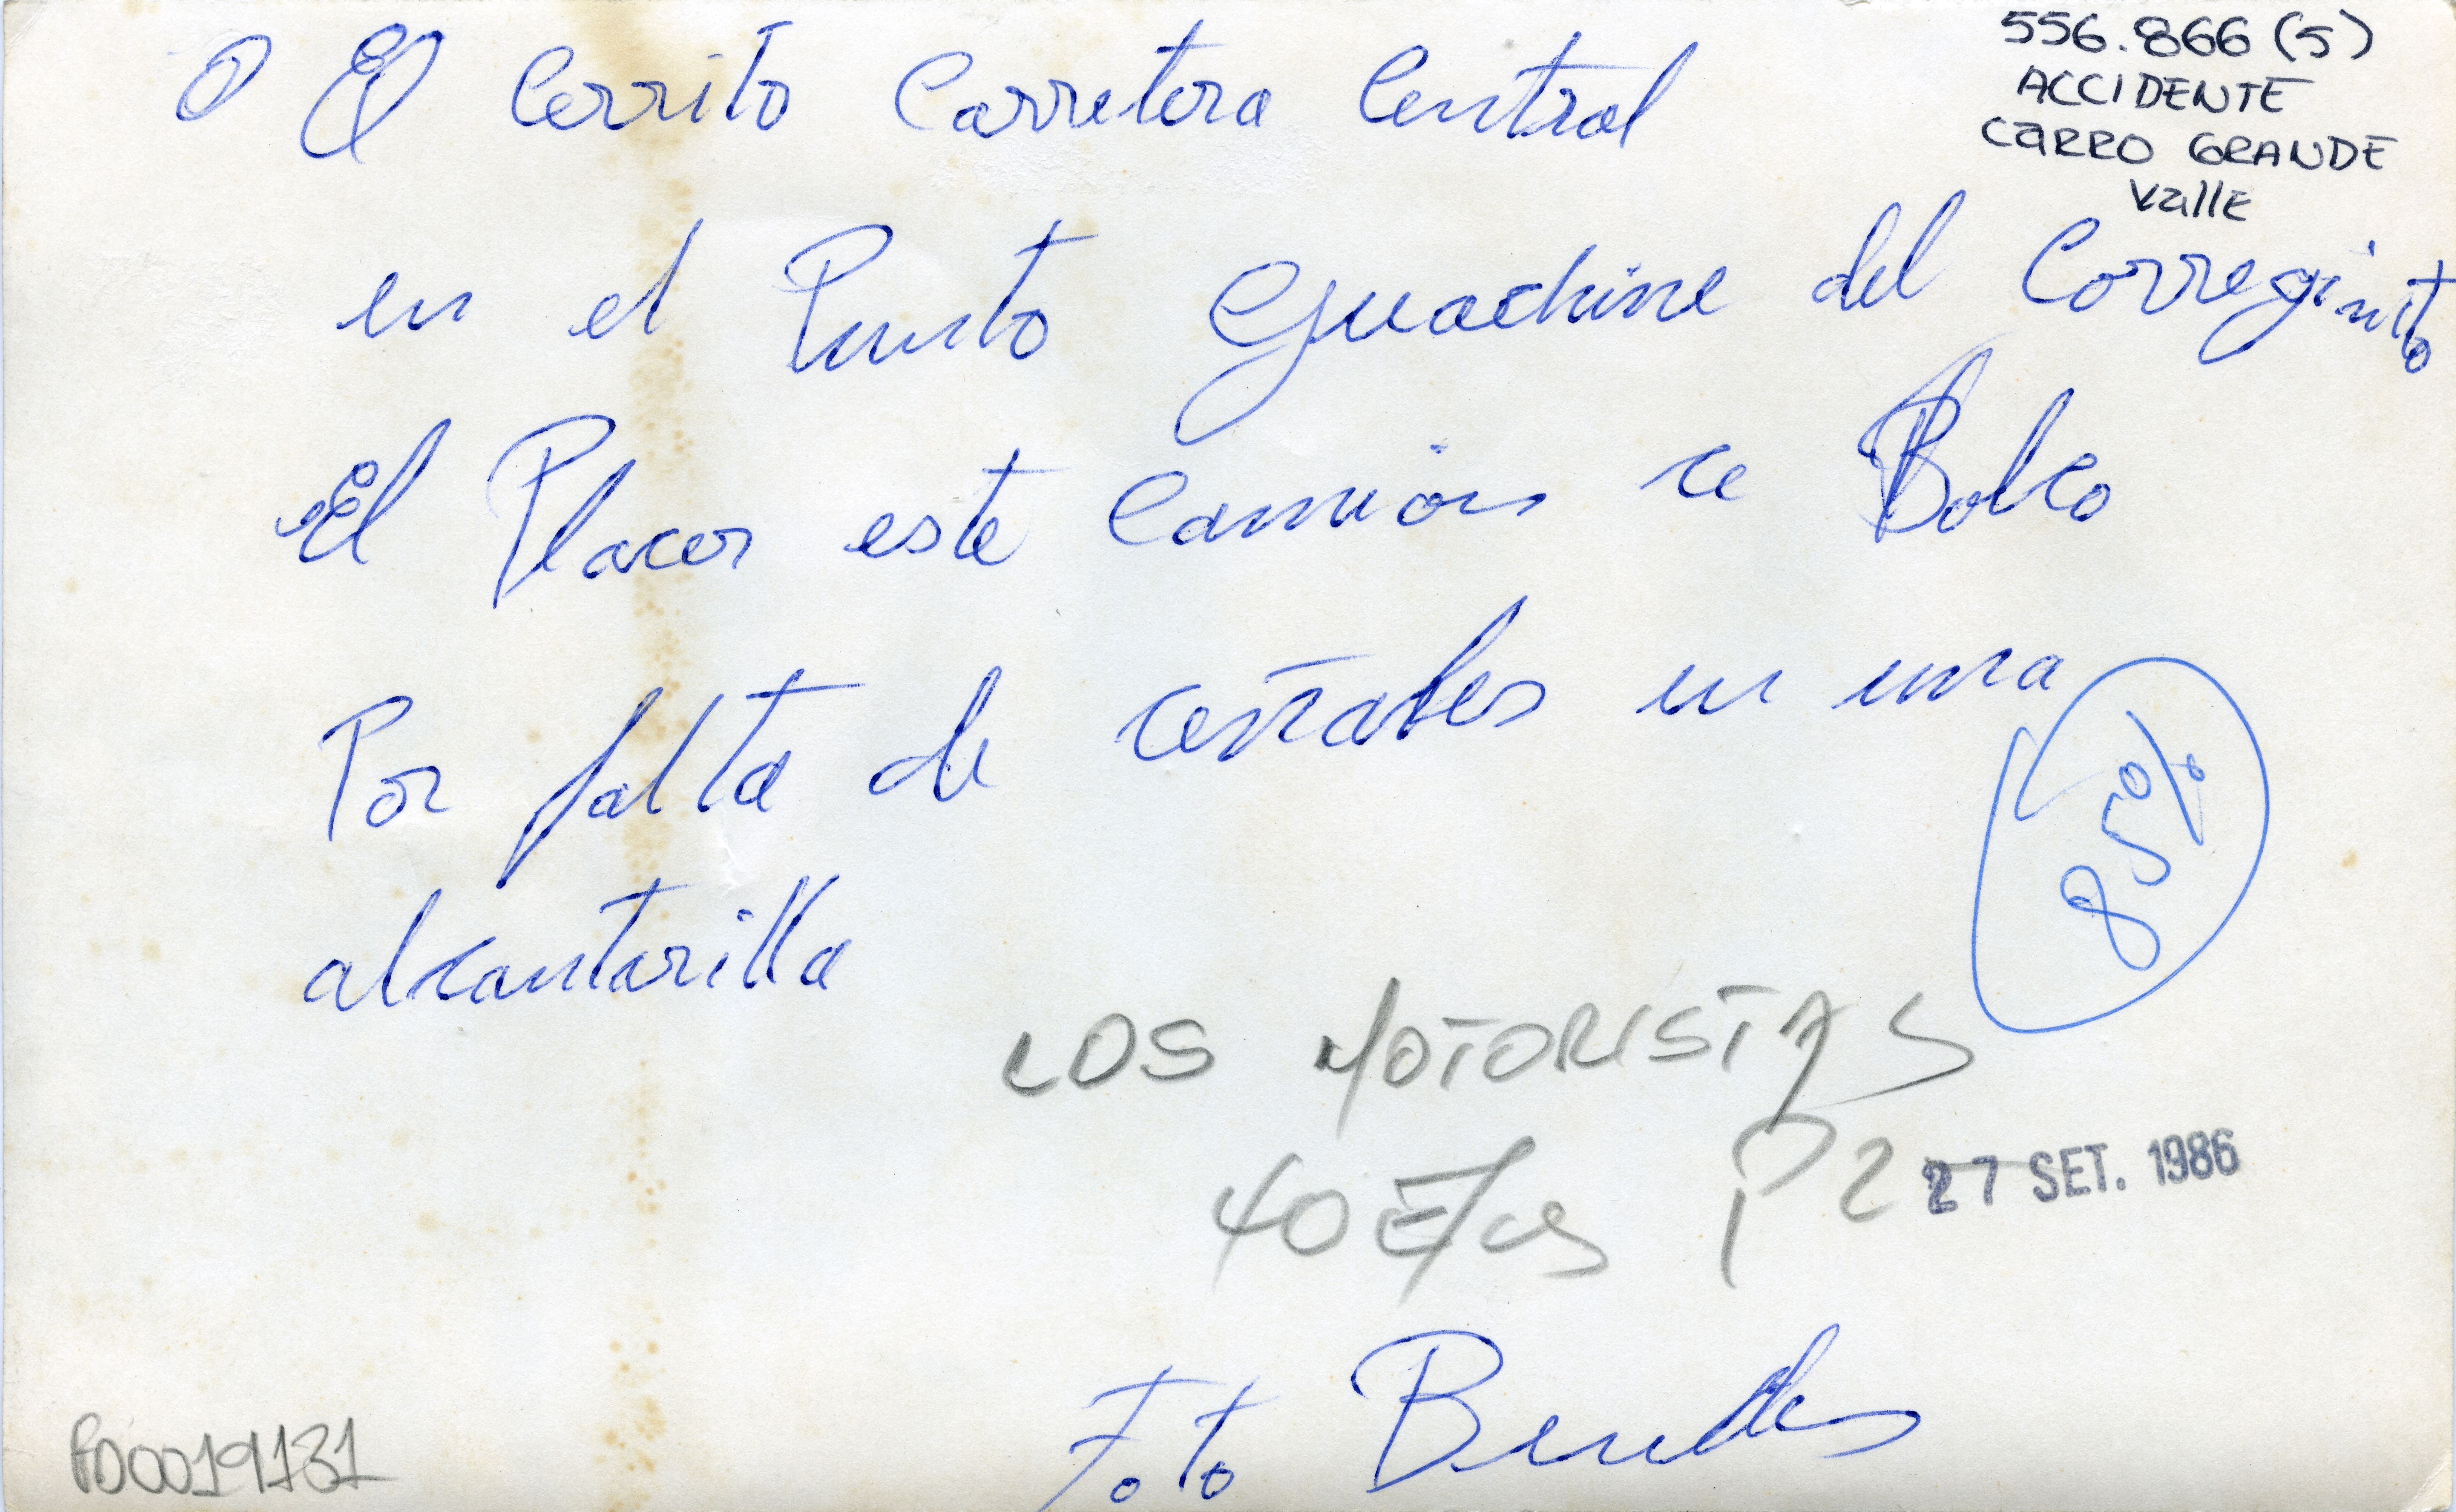 556.866 (5)
ACCIDENTE
CARRO GRANDE
Valle
O El Cerrito Carretera Central
en el Punto Guachine del Correginto
El Placer este Camión se Bolco
Por falta de ceñales en una
alcantarilla
85%
LOS MOTORISTAS
40 P2
27 SET. 1986
Foto
P00019131